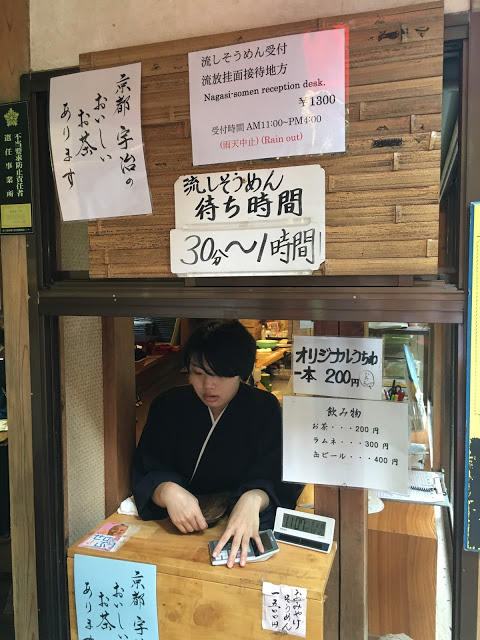 京都 宇治の
おいしい
お茶
あります
流しそうめん受付
流放挂面接待地方
Nagasi-somen reception desk.
¥1300
受付時間 AM11:00~PM4:00
(雨天中止)(Rain out)
流しそうめん
待ち時間
30分~1時間
不当要求防止責任者
選任事業所
オリジナルうちわ
一本 200円
飲み物
お茶・・・200円
ラムネ・・・300円
缶ビール・・・400円
京都 宇治の
おいしい
お茶
あります
おみやげ
そうめん